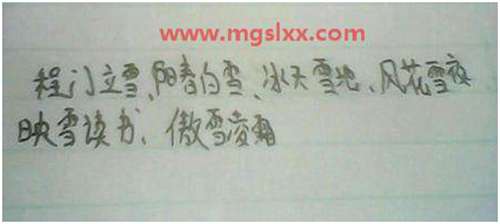 www.mgslxx.com
程门立雪、阳春白雪、冰天雪地、风花雪夜
映雪读书、傲雪凌霜